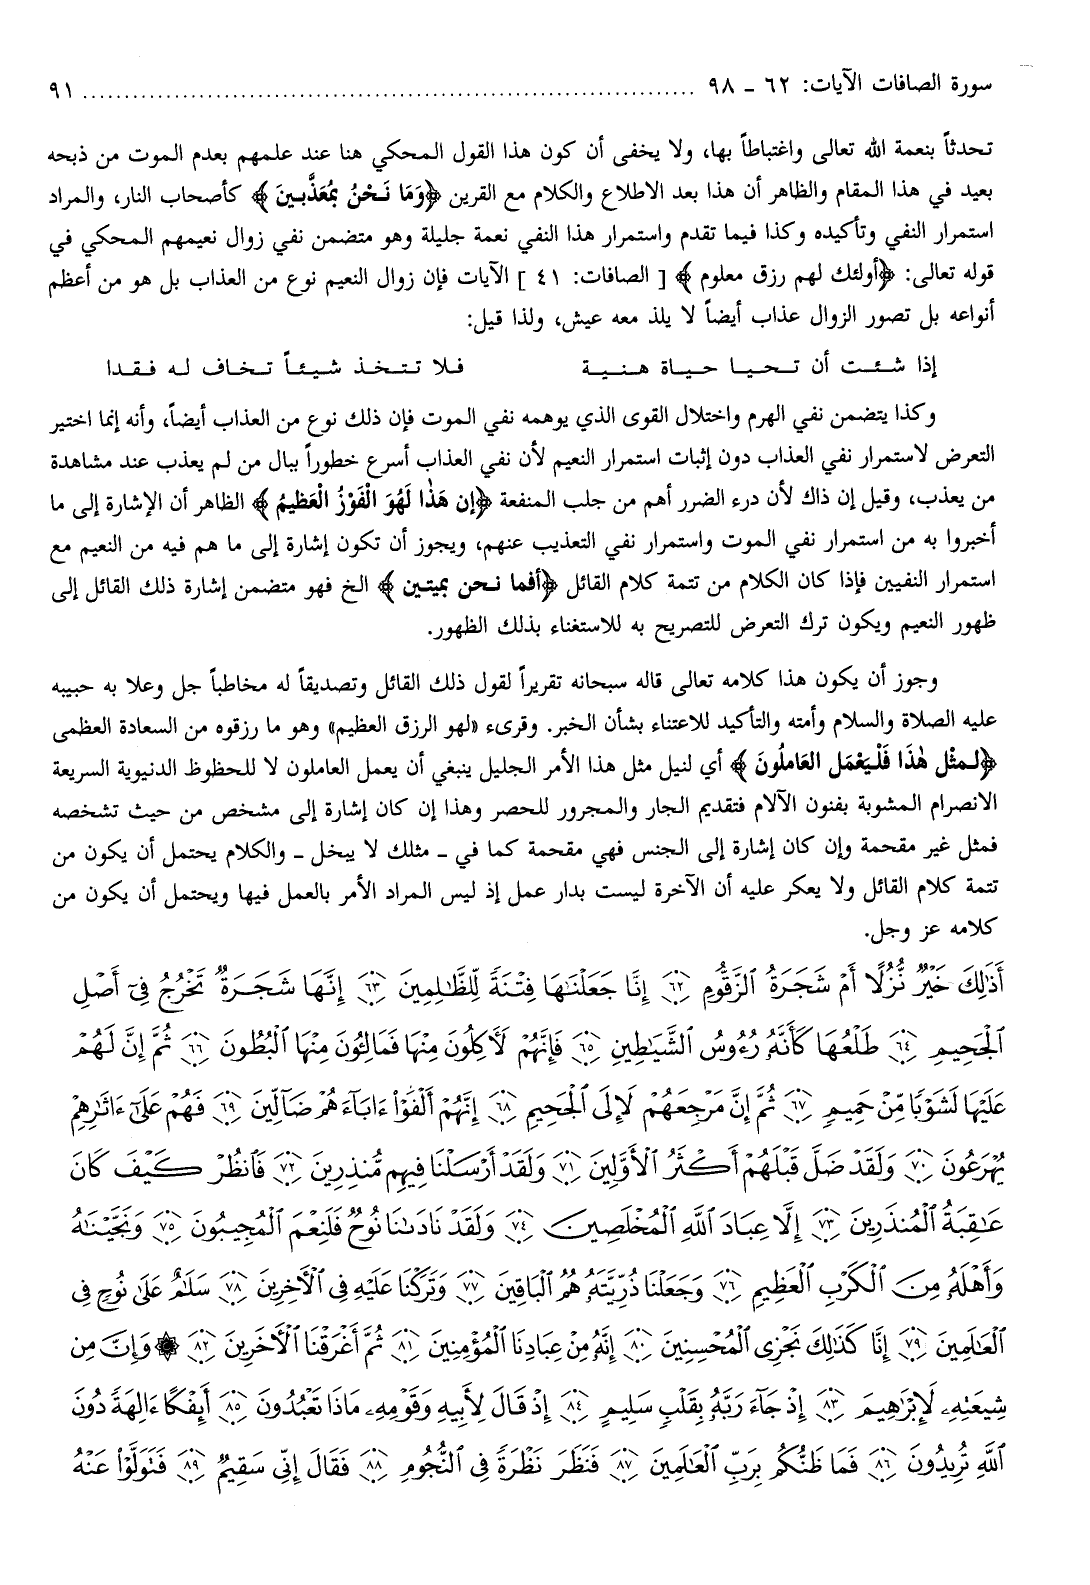 سورة الصافات الآيات: ٦٢ ـ ٩٨ ........................................................................ ٩١
تحدثاً بنعمة الله تعالى واغتباطاً بها، ولا يخفى أن كون هذا القول المحكي هنا عند علمهم بعدم الموت من ذبحه
بعيد في هذا المقام والظاهر أن هذا بعد الاطلاع والكلام مع القرين ﴿وَمَا نَحْنُ بِمُعَذَّبينَ﴾ كأصحاب النار، والمراد
استمرار النفي وتأكيده وكذا فيما تقدم واستمرار هذا النفي نعمة جليلة وهو متضمن نفي زوال نعيمهم المحكي في
قوله تعالى: ﴿أولئك لهم رزق معلوم﴾ [ الصافات: ٤١ ] الآيات فإن زوال النعيم نوع من العذاب بل هو من أعظم
أنواعه بل تصور الزوال عذاب أيضاً لا يلذ معه عيش، ولذا قيل:
إذا شئت أن تحيا حياة هنية فلا تتخذ شيئاً تخاف له فقدا
وكذا يتضمن نفي الهرم واختلال القوى الذي يوهمه نفي الموت فإن ذلك نوع من العذاب أيضاً، وأنه إنما اختير
التعرض لاستمرار نفي العذاب دون إثبات استمرار النعيم لأن نفي العذاب أسرع خطوراً ببال من لم يعذب عند مشاهدة
من يعذب، وقيل إن ذاك لأن درء الضرر أهم من جلب المنفعة ﴿إن هَذَا لَهُوَ الْفَوْزُ الْعَظيمُ﴾ الظاهر أن الإشارة إلى ما
أخبروا به من استمرار نفي الموت واستمرار نفي التعذيب عنهم، ويجوز أن تكون إشارة إلى ما هم فيه من النعيم مع
استمرار النفيين فإذا كان الكلام من تتمة كلام القائل ﴿أفما نحن بميتين﴾ الخ فهو متضمن إشارة ذلك القائل إلى
ظهور النعيم ويكون ترك التعرض للتصريح به للاستغناء بذلك الظهور.
وجوز أن يكون هذا كلامه تعالى قاله سبحانه تقريراً لقول ذلك القائل وتصديقاً له مخاطباً جل وعلا به حبيبه
عليه الصلاة والسلام وأمته والتأكيد للاعتناء بشأن الخبر. وقرىء «لهو الرزق العظيم» وهو ما رزقوه من السعادة العظمى
﴿لمثْلِ هَذَا فَلْيَعْمَلِ العَاملُونَ﴾ أي لنيل مثل هذا الأمر الجليل ينبغي أن يعمل العاملون لا للحظوظ الدنيوية السريعة
الانصرام المشوبة بفنون الآلام فتقديم الجار والمجرور للحصر وهذا إن كان إشارة إلى مشخص من حيث تشخصه
فمثل غير مقحمة وإن كان إشارة إلى الجنس فهي مقحمة كما في ـ مثلك لا يبخل ـ والكلام يحتمل أن يكون من
تتمة كلام القائل ولا يعكر عليه أن الآخرة ليست بدار عمل إذ ليس المراد الأمر بالعمل فيها ويحتمل أن يكون من
كلامه عز وجل.
أَذَٰلِكَ خَيْرٌ نُّزُلًا أَمْ شَجَرَةُ ٱلزَّقُّومِ ٦٢ إِنَّا جَعَلْنَٰهَا فِتْنَةً لِّلظَّٰلِمِينَ ٦٣ إِنَّهَا شَجَرَةٌ تَخْرُجُ فِىٓ أَصْلِ
ٱلْجَحِيمِ ٦٤ طَلْعُهَا كَأَنَّهُۥ رُءُوسُ ٱلشَّيَٰطِينِ ٦٥ فَإِنَّهُمْ لَءَاكِلُونَ مِنْهَا فَمَالِـُٔونَ مِنْهَا ٱلْبُطُونَ ٦٦ ثُمَّ إِنَّ لَهُمْ
عَلَيْهَا لَشَوْبًا مِّنْ حَمِيمٍ ٦٧ ثُمَّ إِنَّ مَرْجِعَهُمْ لَإِلَى ٱلْجَحِيمِ ٦٨ إِنَّهُمْ أَلْفَوْا۟ ءَابَآءَهُمْ ضَآلِّينَ ٦٩ فَهُمْ عَلَىٰٓ ءَاثَٰرِهِمْ
يُهْرَعُونَ ٧٠ وَلَقَدْ ضَلَّ قَبْلَهُمْ أَكْثَرُ ٱلْأَوَّلِينَ ٧١ وَلَقَدْ أَرْسَلْنَا فِيهِم مُّنذِرِينَ ٧٢ فَٱنظُرْ كَيْفَ كَانَ
عَٰقِبَةُ ٱلْمُنذَرِينَ ٧٣ إِلَّا عِبَادَ ٱللَّهِ ٱلْمُخْلَصِينَ ٧٤ وَلَقَدْ نَادَىٰنَا نُوحٌ فَلَنِعْمَ ٱلْمُجِيبُونَ ٧٥ وَنَجَّيْنَٰهُ
وَأَهْلَهُۥ مِنَ ٱلْكَرْبِ ٱلْعَظِيمِ ٧٦ وَجَعَلْنَا ذُرِّيَّتَهُۥ هُمُ ٱلْبَاقِينَ ٧٧ وَتَرَكْنَا عَلَيْهِ فِى ٱلْءَاخِرِينَ ٧٨ سَلَٰمٌ عَلَىٰ نُوحٍ فِى
ٱلْعَٰلَمِينَ ٧٩ إِنَّا كَذَٰلِكَ نَجْزِى ٱلْمُحْسِنِينَ ٨٠ إِنَّهُۥ مِنْ عِبَادِنَا ٱلْمُؤْمِنِينَ ٨١ ثُمَّ أَغْرَقْنَا ٱلْءَاخَرِينَ ٨٢ ۞ وَإِنَّ مِن
شِيعَتِهِۦ لَإِبْرَٰهِيمَ ٨٣ إِذْ جَآءَ رَبَّهُۥ بِقَلْبٍ سَلِيمٍ ٨٤ إِذْ قَالَ لِأَبِيهِ وَقَوْمِهِۦ مَاذَا تَعْبُدُونَ ٨٥ أَئِفْكًا ءَالِهَةً دُونَ
ٱللَّهِ تُرِيدُونَ ٨٦ فَمَا ظَنُّكُم بِرَبِّ ٱلْعَٰلَمِينَ ٨٧ فَنَظَرَ نَظْرَةً فِى ٱلنُّجُومِ ٨٨ فَقَالَ إِنِّى سَقِيمٌ ٨٩ فَتَوَلَّوْا۟ عَنْهُ